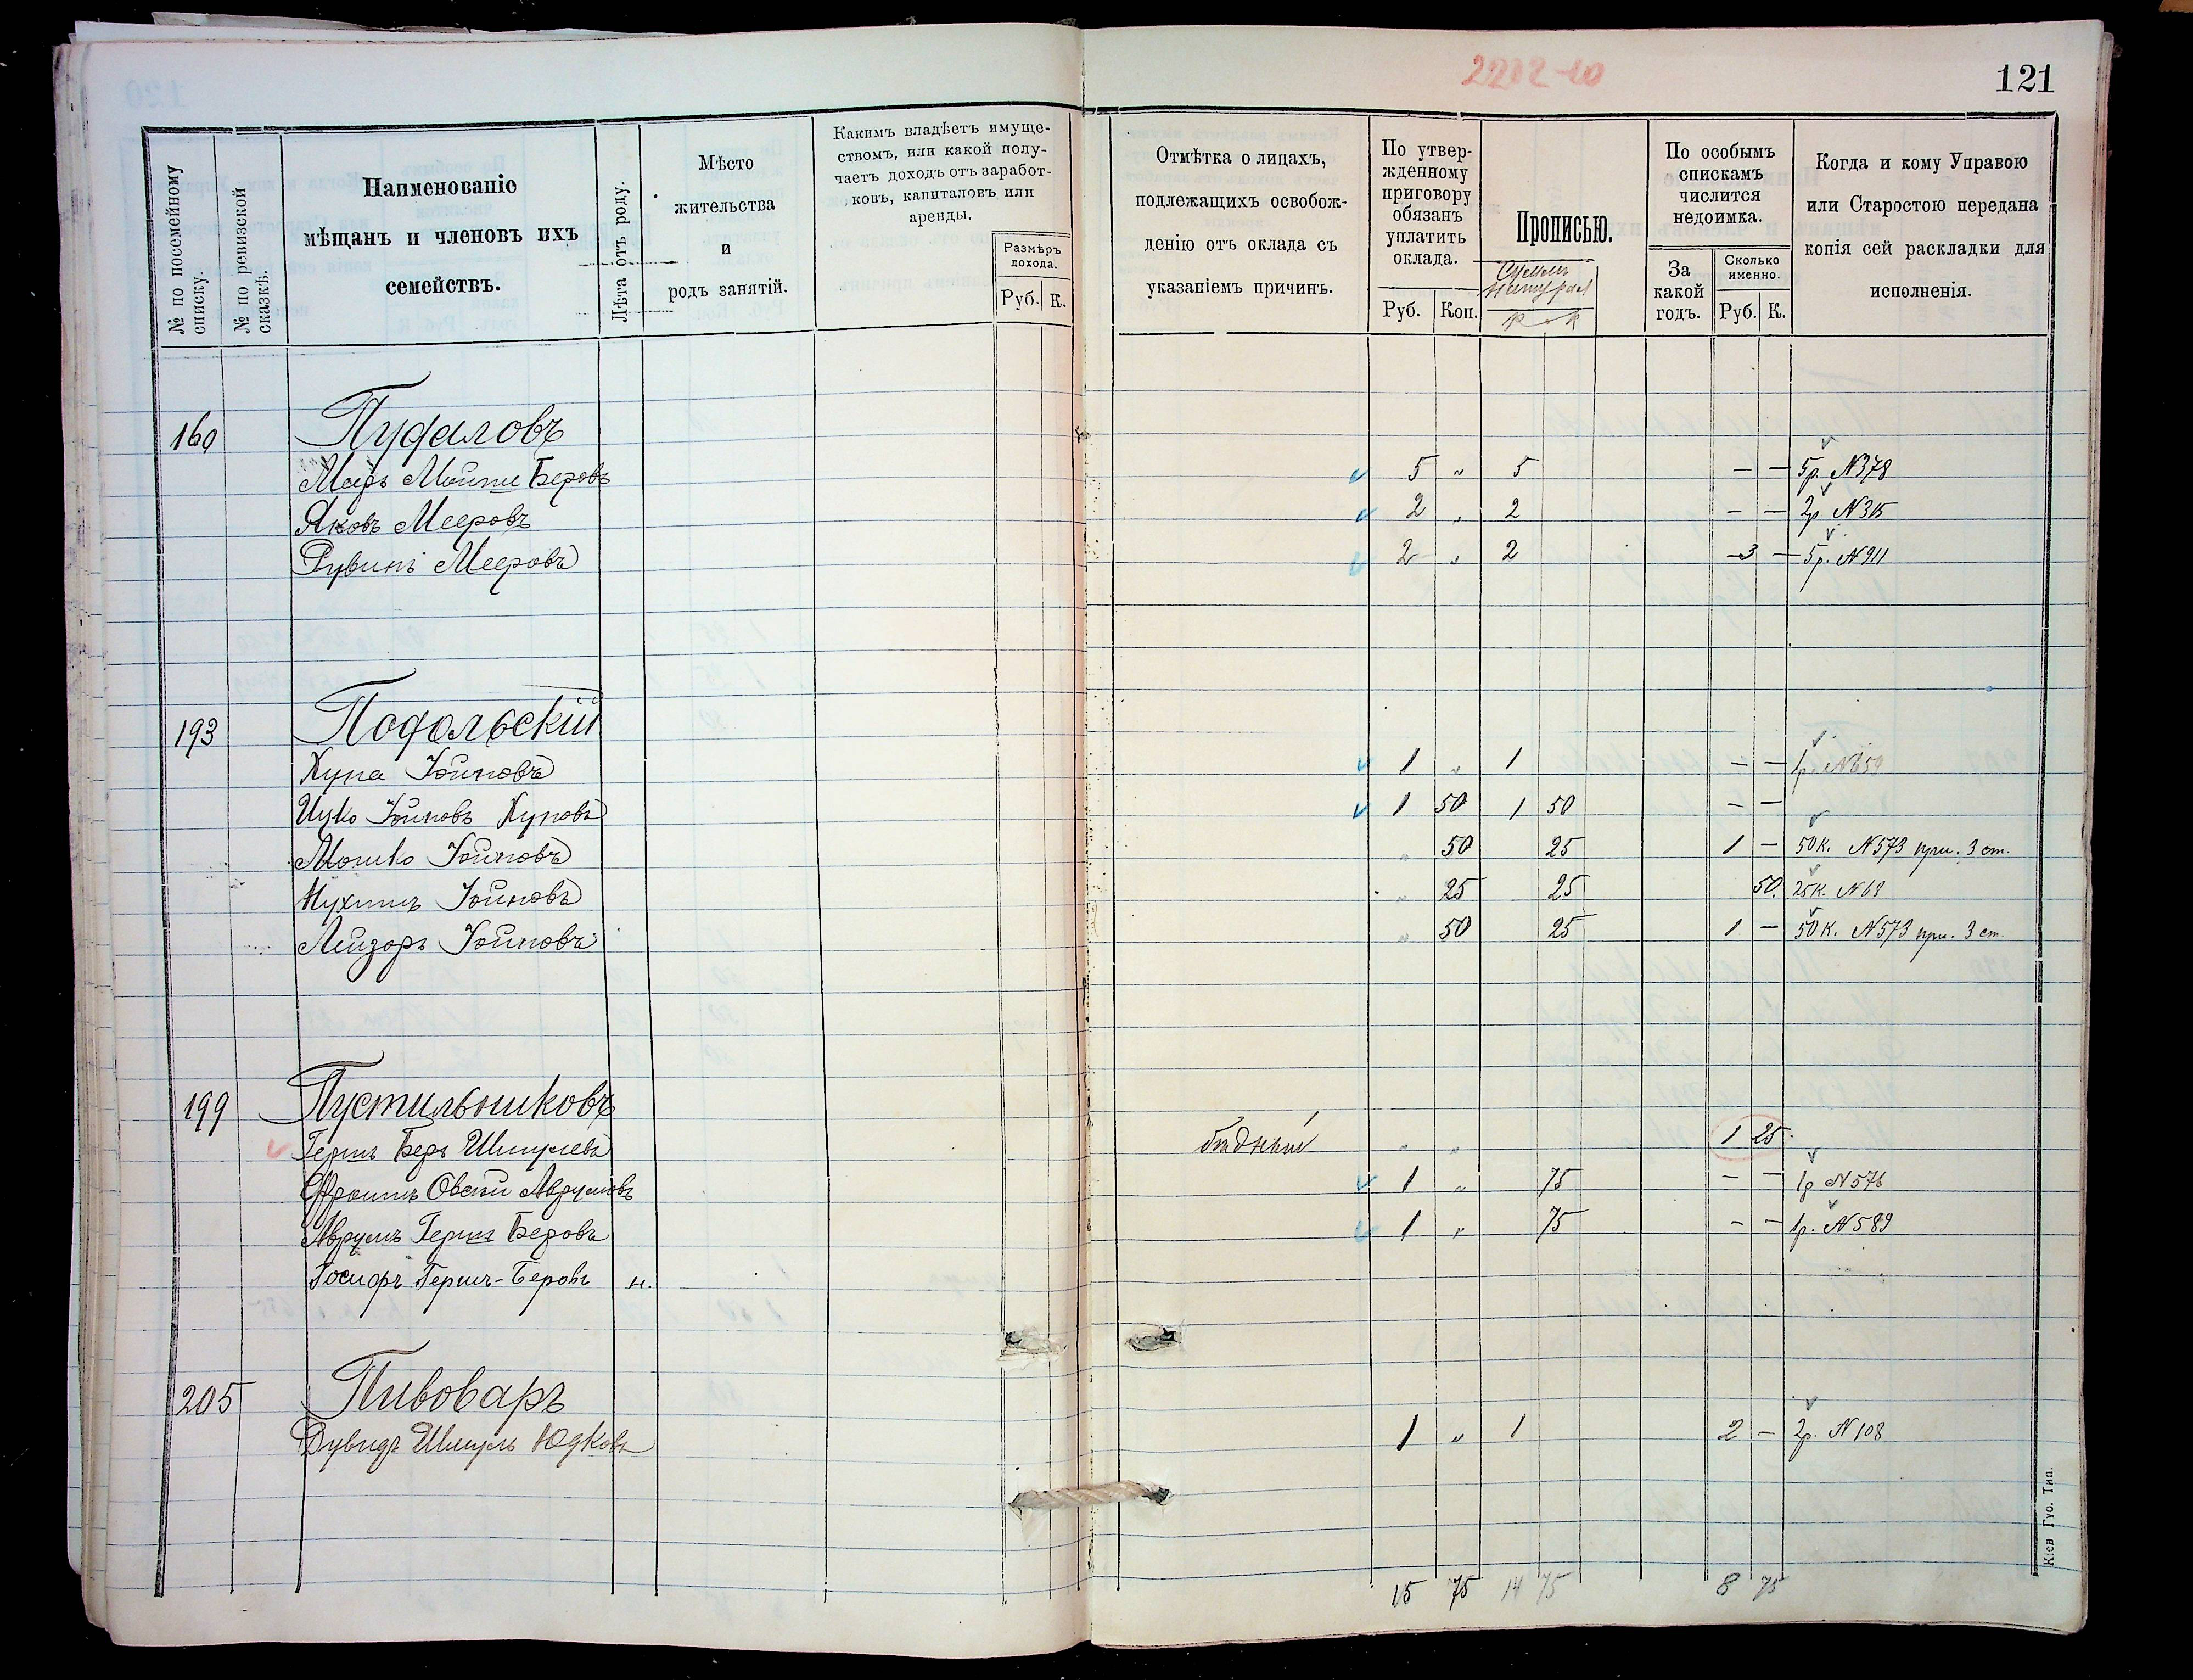 2212-10
121
№ по посемейному списку.
№ по ревизской сказкѣ.
Наименованіе
мѣщанъ и членовъ ихъ
семействъ.
Лѣта отъ роду.
Мѣсто
жительства
и
родъ занятій.
Какимъ владѣетъ имуще-
ствомъ, или какой полу-
чаетъ доходъ отъ заработ-
ковъ, капиталовъ или
аренды.
Размѣръ
дохода.
Руб. К.
Отмѣтка о лицахъ,
подлежащихъ освобож-
денію отъ оклада съ
указаніемъ причинъ.
По утвер-
жденному
приговору
обязанъ
уплатить
оклада.
Руб. Коп.
Прописью.
По особымъ
спискамъ
числится
недоимка.
За
какой
годъ.
Сколько
именно.
Руб. К.
Когда и кому Управою
или Старостою передана
копія сей раскладки для
исполненія.
160 Пудаловъ
Меръ Мойше Беровъ 5 „ 5 — — 5р. N378
Яковъ Мееровъ 2 „ 2 — — 2р. N315
Рувинъ Мееровъ 2 „ 2 —3 — 5р. N911
193 Подольскій
Хуна Іойновъ 1 „ 1 — — 1р. N659
Ицко Іойновъ Хуновъ 1 50 1 50 — —
Мошко Іойновъ „ 50 25 1 — 50к. N573 при. 3 ст.
Нухимъ Іойновъ „ 25 25 50. 25к. N68
Лейзоръ Іойновъ „ 50 25 1 — 50к. N573 при. 3 ст.
199 Пустильниковъ
Гершъ Беръ Шмулевъ бѣдный „ „ 1 25
Фроимъ Овсей Аврумовъ 1 „ 75 — — 1р N576
Аврумъ Гершъ Беровъ 1 „ 75 — — 1р. N589
Іосифъ Гершъ-Беровъ н.
205 Пивоваръ
Дувидъ Шмуль Юдковъ 1 „ 1 2 — 2р. N108
15 75 14 75 8 75
Кіев Губ. Тип.